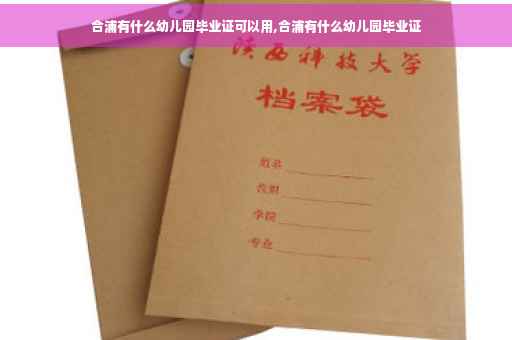 合浦有什么幼儿园毕业证可以用,合浦有什么幼儿园毕业证
陕西科技大学
档案袋
姓名
学院
专业